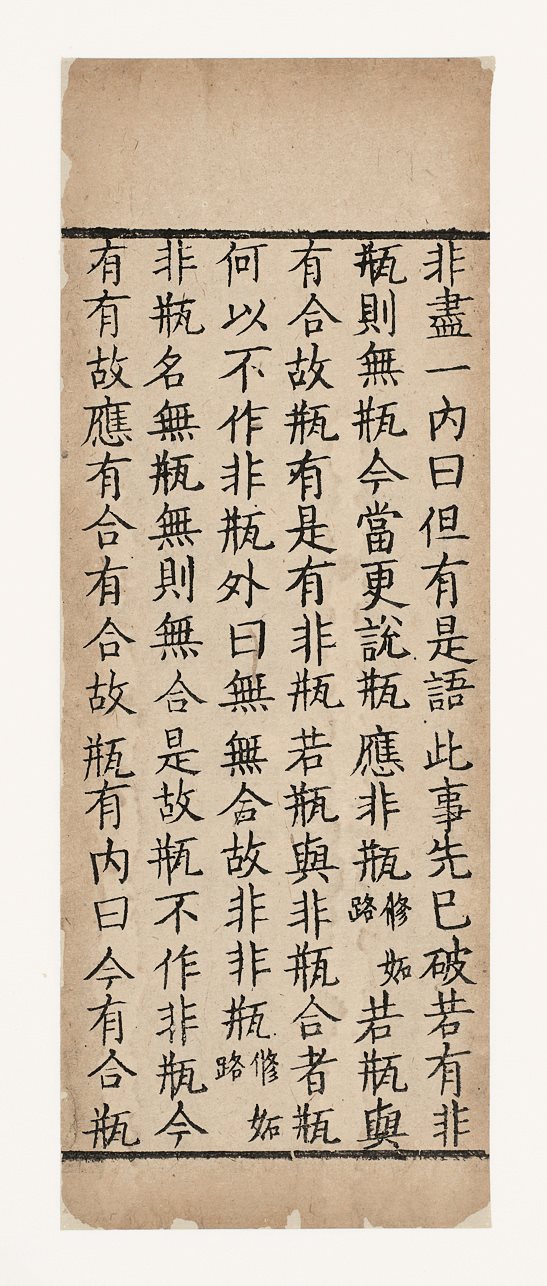 非盡一内曰但有是語此事先巳破若有非
瓶則無瓶今當更說瓶應非瓶修妬路若瓶與
有合故瓶有是有非瓶若瓶與非瓶合者瓶
何以不作非瓶外曰無無合故非非瓶修妬路
非瓶名無瓶無則無合是故瓶不作非瓶今
有有故應有合有合故瓶有内曰今有合瓶